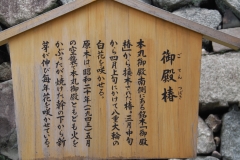 御殿椿
ごてんつばき
本丸御殿南側にある銘木「御殿
椿」から接木された椿。三月中旬
から四月上旬にかけて八重大輪の
白花を咲かせる。
原木は昭和二十年(一九四五)五月
の空襲で本丸御殿とともども火を
かぶったが焼けた幹の下から新
芽が伸び毎年花を咲かせている。